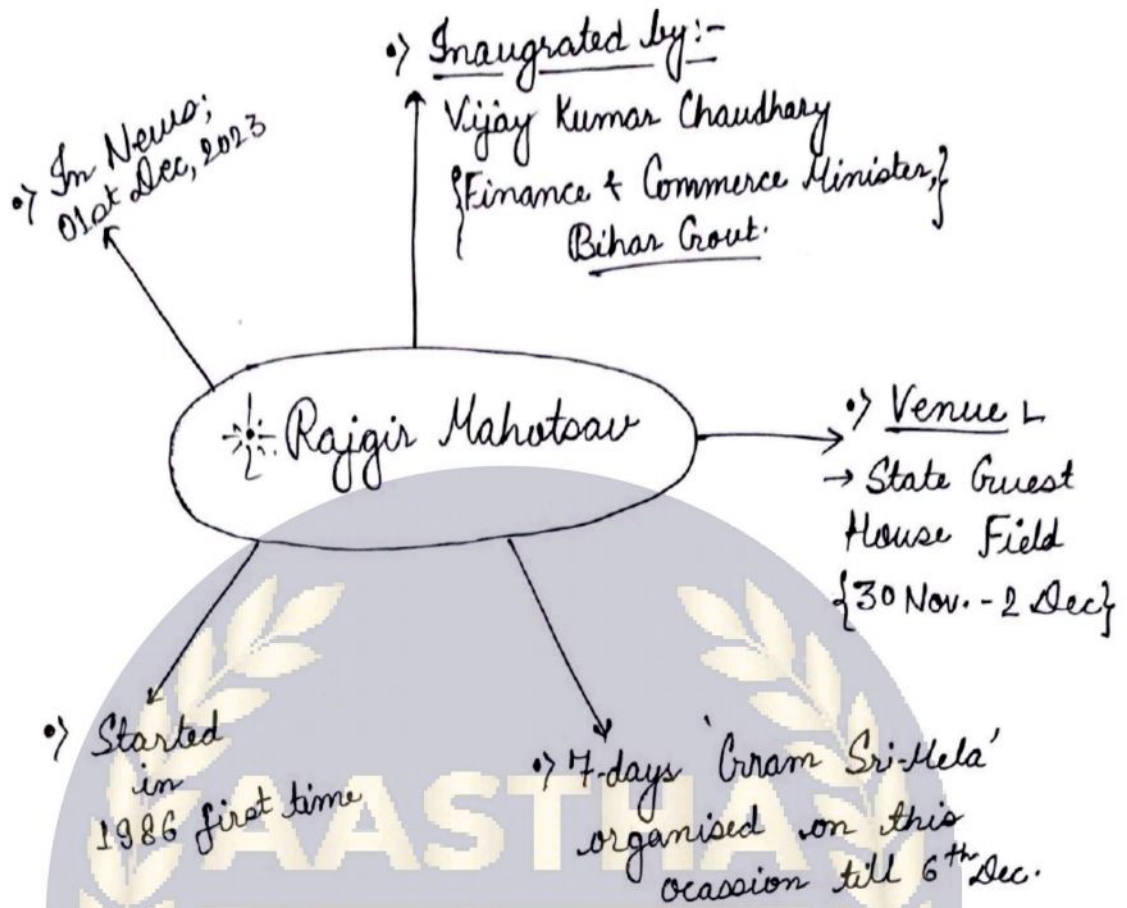 •) Inaugrated by:-
Vijay Kumar Chaudhary
{Finance & Commerce Minister,}
Bihar Govt.
•) In News;
01st Dec, 2023
Rajgir Mahotsav
•) Venue
→ State Guest
House Field
{30 Nov. - 2 Dec}
•) Started
in
1986 first time
•) 7-days 'Gram Sri-Mela'
organised on this
ocassion till 6th Dec.
AASTHA